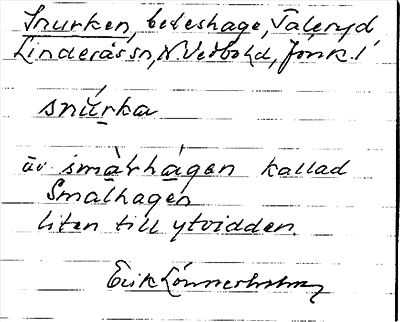 Snurken, beteshage, Täleryd
Linderås sn, N. Vedbo hd, Jönk. l
snúrka
äv smàlhágen kallad
Smalhagen
liten till ytvidden.
Erik Lönnerholm